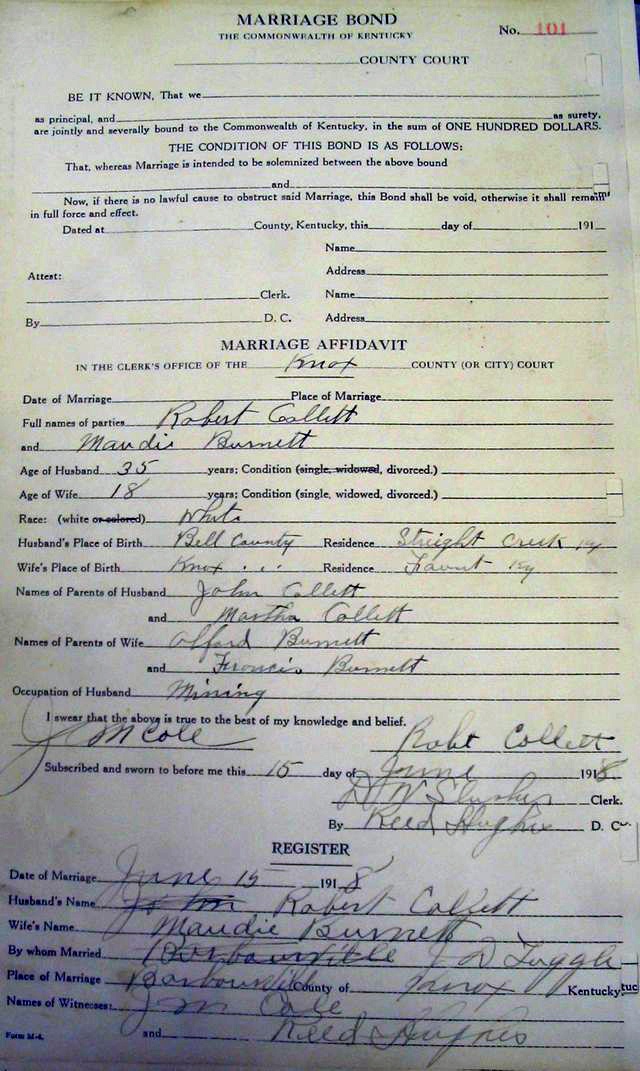 MARRIAGE BOND
THE COMMONWEALTH OF KENTUCKY
No. 101
COUNTY COURT
BE IT KNOWN, That we
as principal, and as surety,
are jointly and severally bound to the Commonwealth of Kentucky, in the sum of ONE HUNDRED DOLLARS.
THE CONDITION OF THIS BOND IS AS FOLLOWS:
That, whereas Marriage is intended to be solemnized between the above bound
and
Now, if there is no lawful cause to obstruct said Marriage, this Bond shall be void, otherwise it shall remain
in full force and effect.
Dated at County, Kentucky, this day of 191
Name
Address
Attest:
Clerk. Name
By D. C. Address
MARRIAGE AFFIDAVIT
IN THE CLERK'S OFFICE OF THE Knox COUNTY (OR CITY) COURT
Date of Marriage Place of Marriage
Full names of parties Robert Collett
and Maudie Burnett
Age of Husband 35 years; Condition (single, widowed, divorced.)
Age of Wife 18 years; Condition (single, widowed, divorced.)
Race: (white or colored) White
Husband's Place of Birth Bell County Residence Straight Creek Ky
Wife's Place of Birth Knox " " Residence Ky
Names of Parents of Husband John Collett
and Martha Collett
Names of Parents of Wife Alford Burnett
and Francis Burnett
Occupation of Husband Mining
I swear that the above is true to the best of my knowledge and belief.
J M Cole Robt Collett
Subscribed and sworn to before me this 15 day of June 1918
D W Slusher Clerk.
By Reed Hughes D. C.
REGISTER
Date of Marriage June 15 1918
Husband's Name John Robert Collett
Wife's Name Maudie Burnett
By whom Married Barbourville J D Tuggle
Place of Marriage Barbourville County of Knox Kentucky
Names of Witnesses: J M Cole
and Reed Hughes
Form M-4.